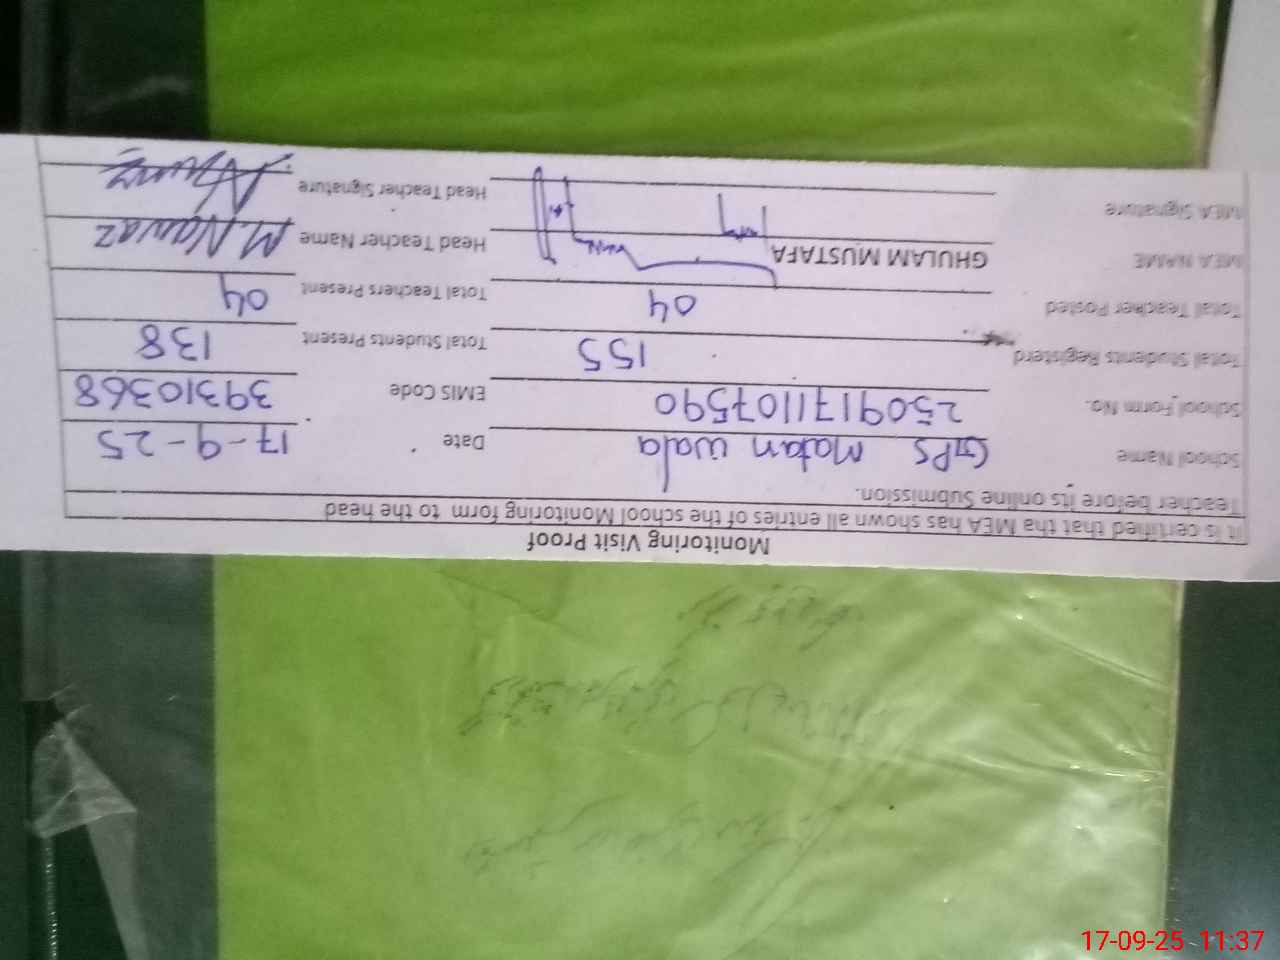 Monitoring Visit Proof
It is certified that tha MEA has shown all entries of the school Monitoring form to the head
Teacher before its online Submission.
School Name GPS Matan wala Date 17-9-25
School Form No. 2509171107590 EMIS Code 39310368
Total Students Registerd 155 Total Students Present 138
Total Teacher Posted 04 Total Teachers Present 04
MEA NAME GHULAM MUSTAFA Head Teacher Name M. Nawaz
MEA Signature Head Teacher Signature
17-09-25 11:37